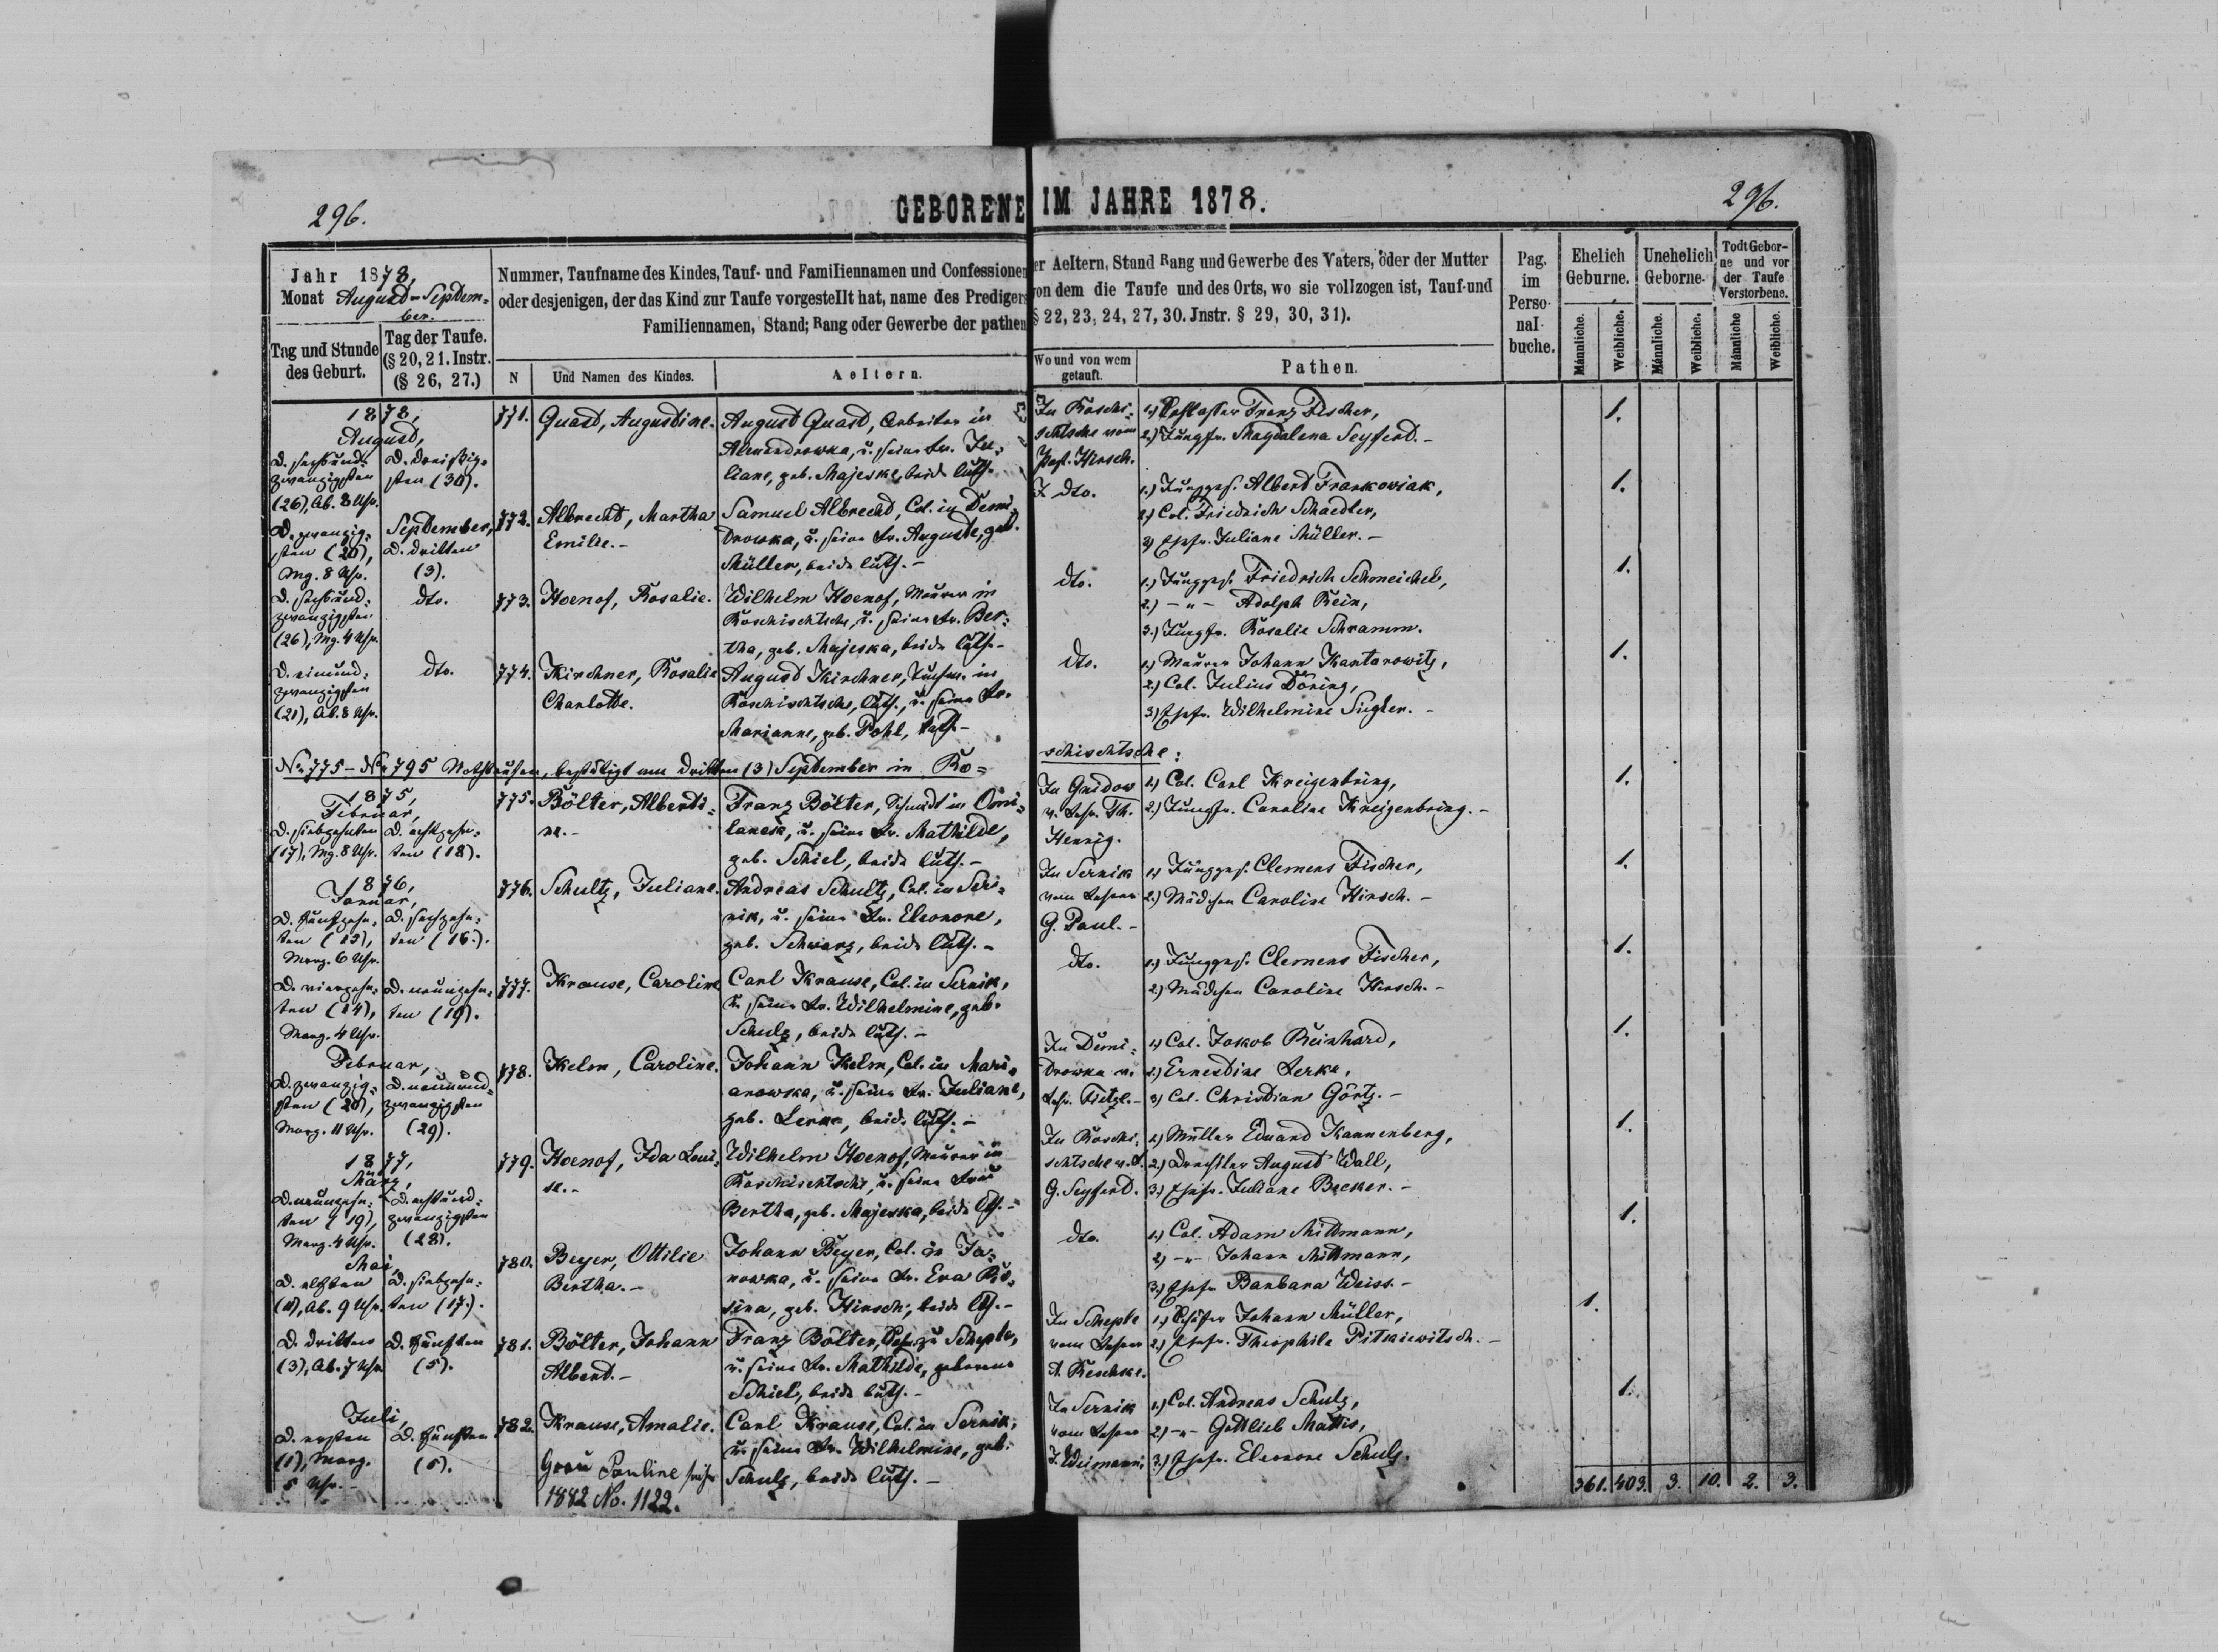 296.
GEBORENE IM JAHRE 1878.
296.
Jahr 1878,
Monat August-Septem=
ber.
Tag und Stunde
des Geburt.
Tag der Taufe.
(§ 20, 21. Instr.
(§ 26, 27.)
Nummer, Taufname des Kindes, Tauf- und Familiennamen und Confessionen
oder desjenigen, der das Kind zur Taufe vorgestellt hat, name des Predigers
Familiennamen, Stand; Rang oder Gewerbe der pathen
N
Und Namen des Kindes.
Aeltern.
er Aeltern, Stand Rang und Gewerbe des Vaters, öder der Mutter
von dem die Taufe und des Orts, wo sie vollzogen ist, Tauf-und
§ 22, 23, 24, 27, 30. Jnstr. § 29, 30, 31).
Wo und von wem
getauft.
Pathen.
Pag.
im
Perso-
nal-
buche.
Ehelich
Geburne.
Unehelich
Geborne.
Todt Gebor-
ne und vor
der Taufe
Verstorbene.
Männliche.
Weibliche.
Männliche.
Weibliche.
Männliche
Weibliche.
1878,
August,
D. sechsund=
zwanzigsten
(26), Ab. 8 Uhr.
D. dreißig=
sten (30).
771.
Quast, Augustine.
August Quast, Arbeiter in
Alexandrowka, u. seine Fr. Ju=
liane, geb. Majeske, beide luth.
In Roschi=
schtsche vom
Past. Hirsch.
1.) Schlosser Franz Fischer,
2.) Jungfr. Magdalena Seyferd. -
1.
D. zwanzig=
sten (20),
Mg. 8 Uhr.
September,
D. dritten
(3).
772.
Albrecht, Martha
Emilie. -
Samuel Albrecht, Col. in Demi=
drowka, u. seine Fr. Auguste, geb.
Müller, beide luth. -
dto.
1.) Junggs. Albert Frankowiak,
2.) Col. Friedrich Schaedler,
3) Ehefr. Juliane Müller. -
1.
D. sechsund=
zwanzigsten
(26), Mg. 4 Uhr.
dto.
773.
Hoenof, Rosalie.
Wilhelm Hoenof, Maurer in
Roschischtsche, u. seine Fr. Ber=
tha, geb. Majeska, beide luth. -
dto.
1.) Junggs. Friedrich Schmeichel,
2.) - " - Adolph Rein,
3.) Jungfr. Rosalie Schramm.
1.
D. einund=
zwanzigsten
(21), Ab. 8 Uhr.
dto.
774.
Kirschner, Rosalie
Charlotte.
August Kirschner, Tuchm. in
Roschischtsche, luth., u. seine Fr.
Marianne, geb. Pohl, kath. -
dto.
1.) Maurer Johann Kantarowitz,
2.) Col. Julius Döring,
3) Ehefr. Wilhelmine Sugler. -
1.
No 775 - No 795 Nothtaufen, bestätigt am dritten (3) September in Ro=
schischtsche:
1875,
Februar,
D. siebzehnten
(17), Mg. 8 Uhr.
D. achtzehn=
ten (18).
775.
Bölter, Alberti=
ne. -
Franz Bölter, Schmidt in Omi=
lanesk, u. seine Fr. Mathilde,
geb. Schiel, beide luth. -
In Gnidow
v. Lehr. Th.
Hennig.
1.) Col. Carl Kreigenbring,
2.) Jungfr. Caroline Kreigenbring. -
1.
1876,
Januar,
D. fünfzehn=
ten (15),
Morg. 6 Uhr.
D. sechzehn=
ten (16.).
776.
Schultz, Juliane.
Andreas Schultz, Col. in Ser=
nik, u. seine Fr. Eleonore,
geb. Schwarz, beide luth. -
In Sernik
vom Lehrer
G. Paul. -
1) Junggs. Clemens Fischer,
2.) Mädchen Caroline Hirsch. -
1.
D. vierzehn=
ten (14),
Morg. 4 Uhr.
D. neunzehn=
ten (19).
777.
Krause, Caroline
Carl Krause, Col. in Sernik,
u. seine Fr. Wilhelmine, geb.
Schulz, beide luth. -
dto.
1.) Junggs. Clemens Fischer,
2.) Mädchen Caroline Hirsch. -
1.
Februar,
D. zwanzig=
sten (20),
Morg. 11 Uhr.
D. neunund=
zwanzigsten
(29).
778.
Kelm, Caroline.
Johann Kelm, Col. in Mari=
anowka, u. seine Fr. Juliane,
geb. Lerke, beide luth. -
In Demi=
drowka v.
Lehr. Tietzl. -
1) Col. Jakob Reinhard,
2.) Ernestine Lerke,
3) Col. Christian Görtz. -
1.
1877,
März,
D. neunzehn=
ten (19),
Morg. 4 Uhr.
D. achtund=
zwanzigsten
(28).
779.
Hoenof, Ida Loui=
se. -
Wilhelm Hoenof, Maurer in
Roschischtsche, u. seine Frau
Bertha, geb. Majeska, beide lth. -
In Roschi=
schtsche v. L.
G. Seyferd.
1.) Müller Eduard Kannenberg,
2.) Drechsler August Wall,
3.) Ehefr. Juliane Becker. -
1.
Mai,
D. elften
(11), Ab. 9 Uhr.
D. siebzehn=
ten (17.).
780.
Beyer, Ottilie
Bertha. -
Johann Beyer, Col. in Ja=
nowka, u. seine Fr. Eva Ro=
sina, geb. Hirsch, beide lth. -
dto.
1.) Col. Adam Mittmann,
2) - " - Johann Mittmann,
3.) Ehefr. Barbara Weiss. -
1.
D. dritten
(3), Ab. 7 Uhr
D. fünften
(5).
781.
Bölter, Johann
Albert. -
Franz Bölter, zu Schepte,
u. seine Fr. Mathilde, geborene
Schiel, beide luth. -
In Schepte
vom Lehrer
A. Reschke.
1.) Schäfer Johann Müller,
2.) Ehefr. Theophile Pitkiewitsch. -
1.
Juli,
D. ersten
(1), Morg.
5 Uhr. -
D. fünften
(5).
782.
Krause, Amalie.
Carl Krause, Col. in Sernik,
u. seine Fr. Wilhelmine, geb.
Schulz, beide luth. -
In Sernik
vom Lehrer
J. Weimann.
1.) Col. Andreas Schulz,
2.) - " - Gottlieb Mattis,
3.) Ehefr. Eleonore Schulz.
1.
Grau Pauline siehe
1882 No. 1122.
361. 403. 3. 10. 2. 3.